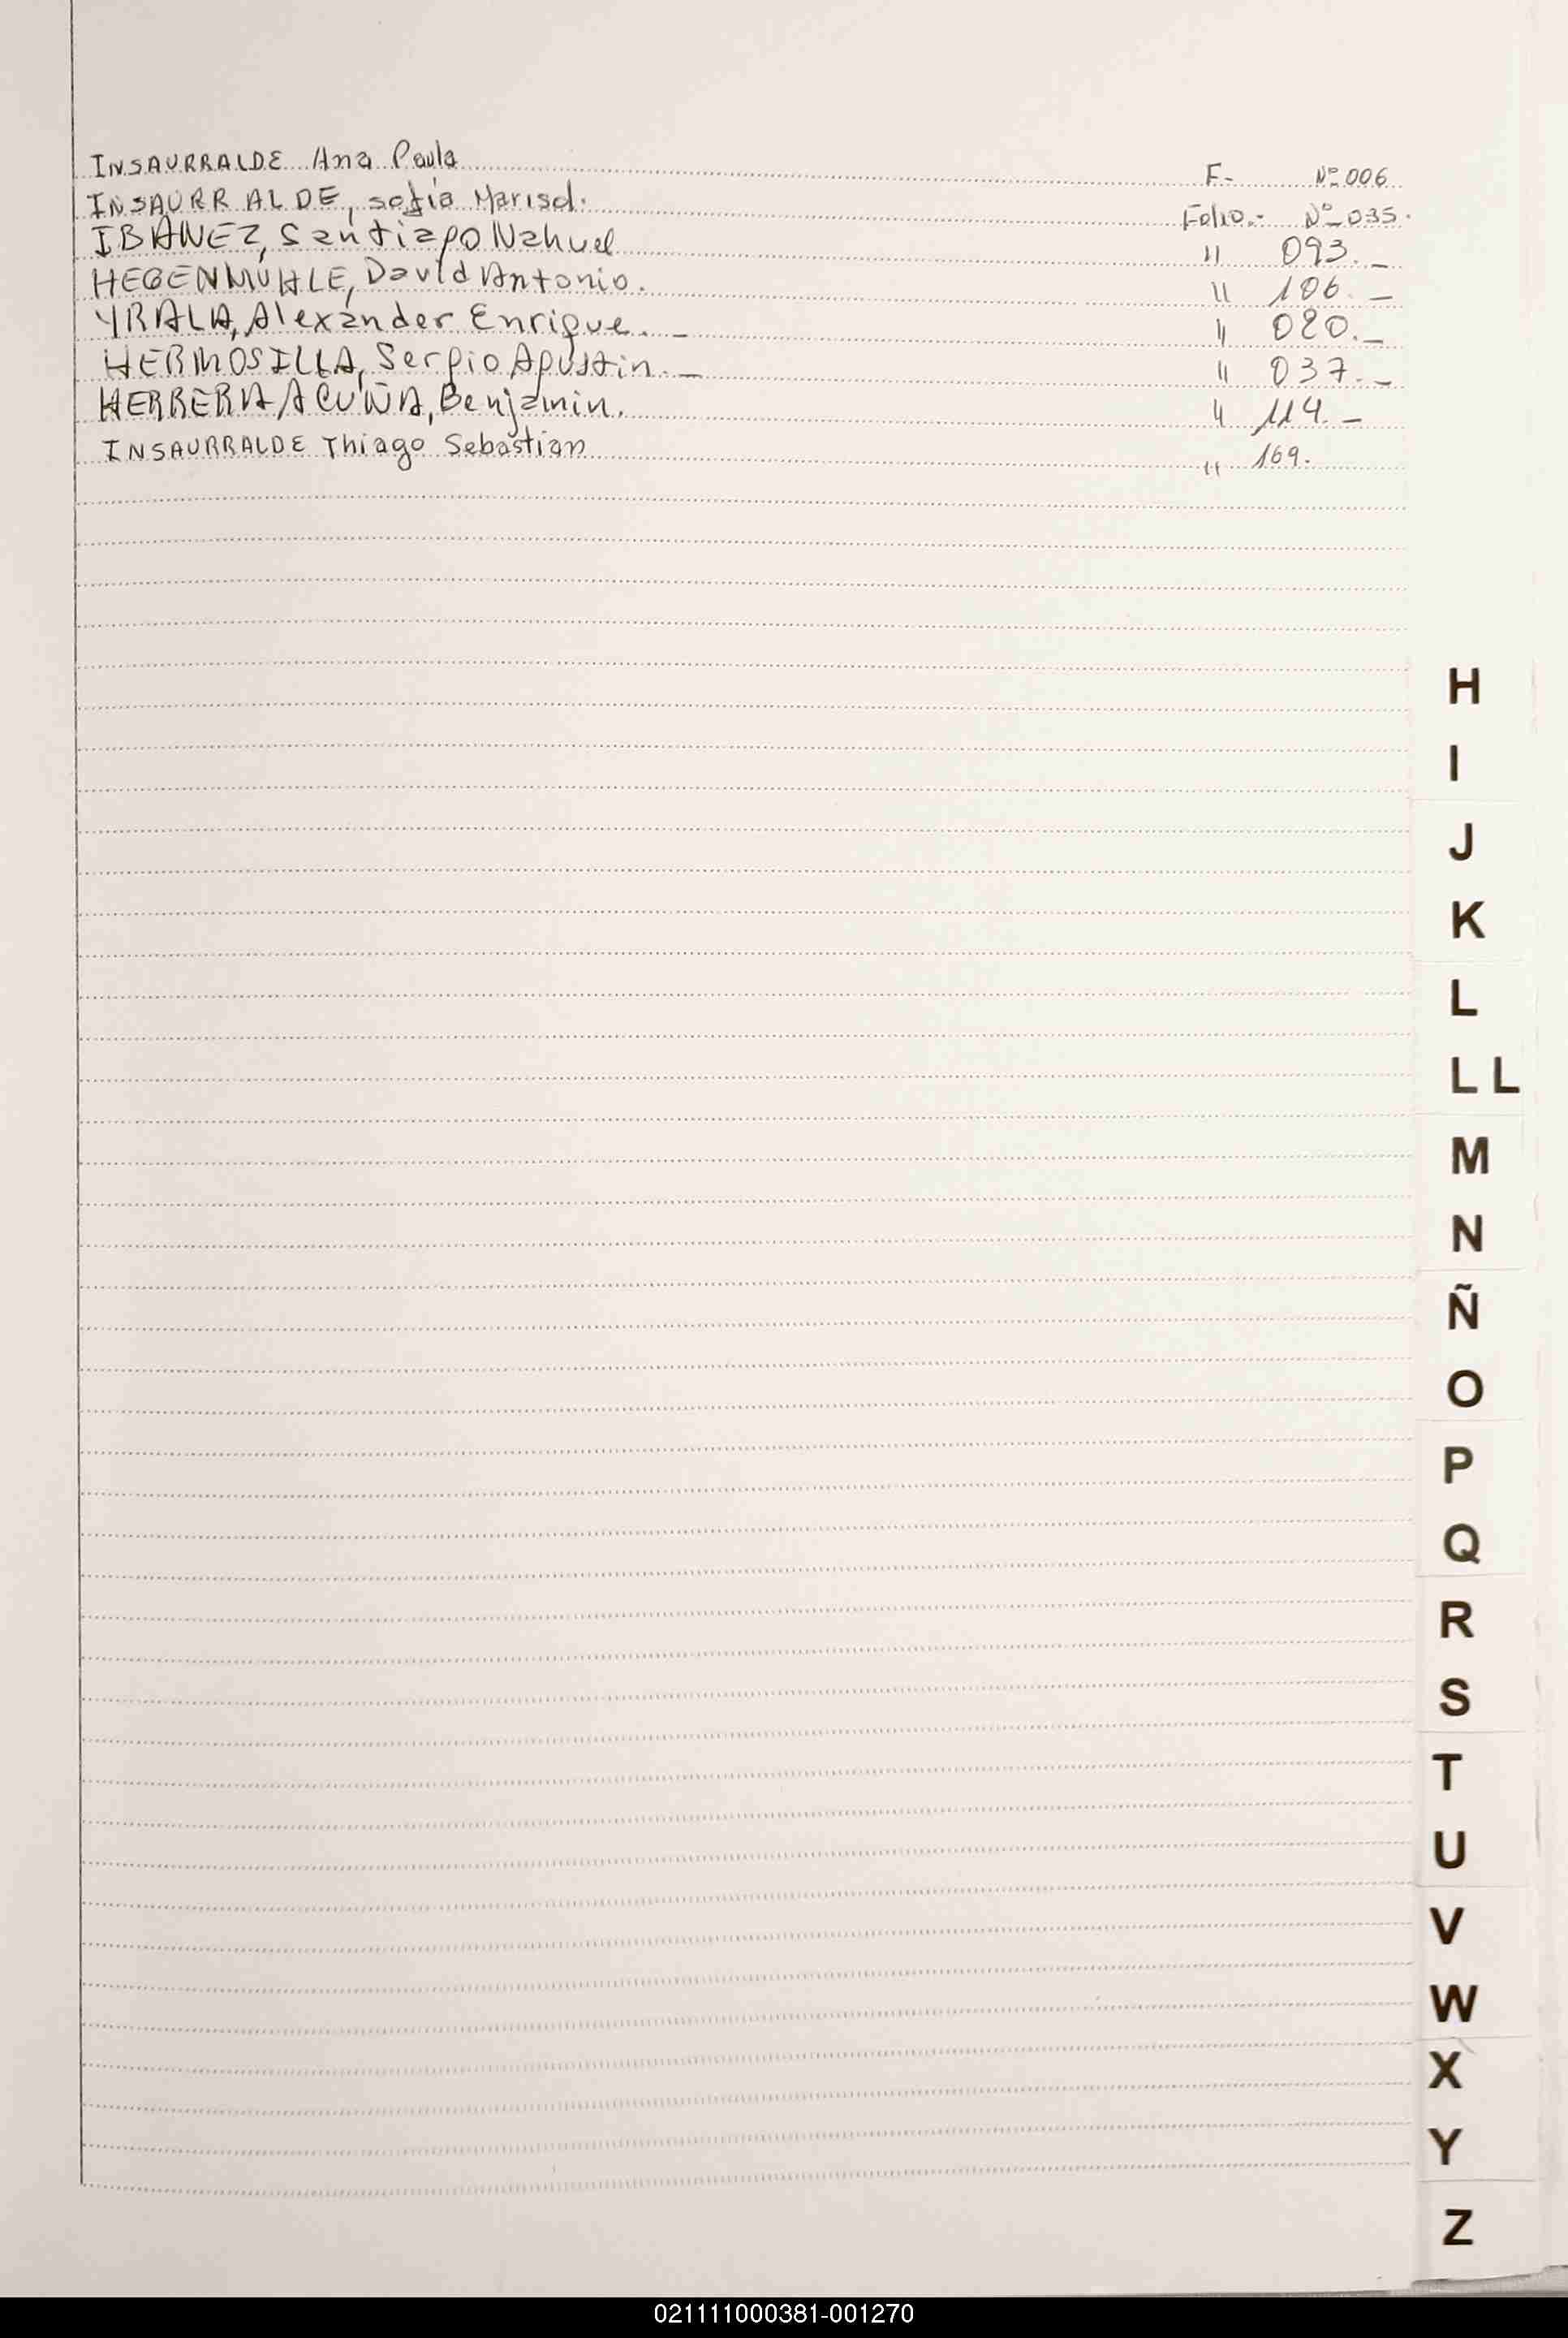 INSAURRALDE Ana Paula F- Nº 006
INSAURRALDE, sofía Marisol. Folio.- Nº 035.
IBAÑEZ, Santiago Nahuel " 093._
HEGENMÜHLE, David Antonio. " 106._
YRALA, Alexander Enrique._ " 020._
HERMOSILLA, Sergio Agustin._ " 037._
HERRERA ACUÑA, Benjamin. " 114._
INSAURRALDE Thiago Sebastian " 169.
H
I
J
K
L
LL
M
N
Ñ
O
P
Q
R
S
T
U
V
W
X
Y
Z
021111000381-001270